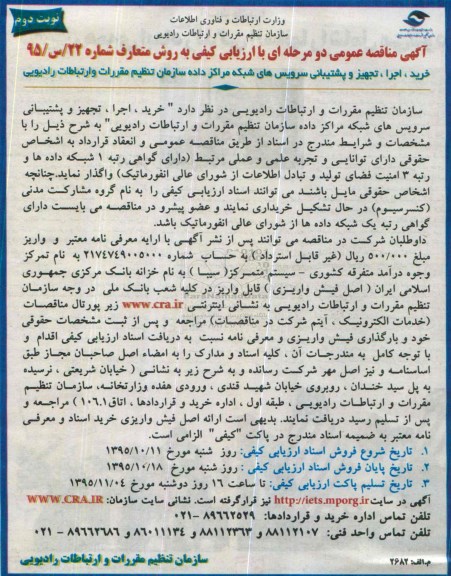 وزارت ارتباطات و فناوری اطلاعات
سازمان تنظیم مقررات و ارتباطات رادیویی
نوبت دوم
آگهی مناقصه عمومی دو مرحله ای با ارزیابی کیفی به روش متعارف شماره ۲۲/س/۹۵
خرید ، اجرا ، تجهیز و پشتیبانی سرویس های شبکه مراکز داده سازمان تنظیم مقررات وارتباطات رادیویی
سازمان تنظیم مقررات و ارتباطات رادیویی در نظر دارد " خرید ، اجرا ، تجهیز و پشتیبانی
سرویس های شبکه مراکز داده سازمان تنظیم مقررات و ارتباطات رادیویی" به شرح ذیل را با
مشخصات و شرایط مندرج در اسناد از طریق مناقصه عمومی و انعقاد قرارداد به اشخاص
حقوقی دارای توانایی و تجربه علمی و عملی مرتبط (دارای گواهی رتبه ۱ شبکه داده ها و
رتبه ۳ امنیت فضای تولید و تبادل اطلاعات از شورای عالی انفورماتیک) واگذار نماید.چنانچه
اشخاص حقوقی مایل باشند می توانند اسناد ارزیابی کیفی را به نام گروه مشارکت مدنی
(کنسرسیوم) در حال تشکیل خریداری نمایند و عضو پیشرو در مناقصه می بایست دارای
گواهی رتبه یک شبکه داده ها از شورای عالی انفورماتیک باشد.
داوطلبان شرکت در مناقصه می توانند پس از نشر آگهی با ارایه معرفی نامه معتبر و واریز
مبلغ ۵۰۰/۰۰۰ ریال (غیر قابل استرداد ) به حساب شماره ۲۱۷۴۷۴۹۰۰۵۰۰۰ به نام تمرکز
وجوه درآمد متفرقه کشوری - سیستم متمرکز( سیبا ) به نام خزانه بانک مرکزی جمهوری
اسلامی ایران ( اصل فیش واریزی ) قابل واریز در کلیه شعب بانک ملی در وجه سازمان
تنظیم مقررات و ارتباطات رادیویی به نشانی اینترنتی www.cra.ir زیر پورتال مناقصات
(خدمات الکترونیک ، آیتم شرکت در مناقصات) مراجعه و پس از ثبت مشخصات حقوقی
خود و بارگذاری فیش واریزی و معرفی نامه نسبت به دریافت اسناد ارزیابی کیفی اقدام و
با توجه کامل به مندرجات آن ، کلیه اسناد و مدارک را به امضاء اصل صاحبان مجاز طبق
اساسنامه و نیز اصل مهر شرکت رسانده و به شرح زیر به نشانی ( خیابان شریعتی ، نرسیده
به پل سید خندان ، روبروی خیابان شهید قندی ، ورودی هفده وزارتخانه، سازمان تنظیم
مقررات و ارتباطات رادیویی ، طبقه اول ، اداره خرید و قراردادها ، اتاق۱۰۶.۱ ) مراجعه و
پس از تسلیم رسید دریافت نمایند. بدیهی است ارائه اصل فیش واریزی خرید اسناد و معرفی
نامه معتبر به ضمیمه اسناد مندرج در پاکت "کیفی" الزامی است.
۱. تاریخ شروع فروش اسناد ارزیابی کیفی: روز شنبه مورخ ۱۳۹۵/۱۰/۱۱
۲. تاریخ پایان فروش اسناد ارزیابی کیفی : روز شنبه مورخ ۱۳۹۵/۱۰/۱۸
۳. تاریخ تسلیم پاکت ارزیابی کیفی: تا ساعت ۱۶ روز دوشنبه مورخ ۱۳۹۵/۱۱/۰۴
آگهی در سایت http://iets.mporg.ir نیز قرار گرفته است. نشانی سایت سازمان: WWW.CRA.IR
تلفن تماس اداره خرید و قراردادها: ۸۹۶۶۲۵۲۹-۰۲۱
تلفن تماس واحد فنی: ۸۸۱۱۲۱۰۷ و ۸۸۱۱۲۳۶۳ و ۸۶۰۱۱۱۳۴ و ۸۹۶۶۲۶۸۶ - ۰۲۱
م.الف: ۲۶۸۲
سازمان تنظیم مقررات و ارتباطات رادیویی